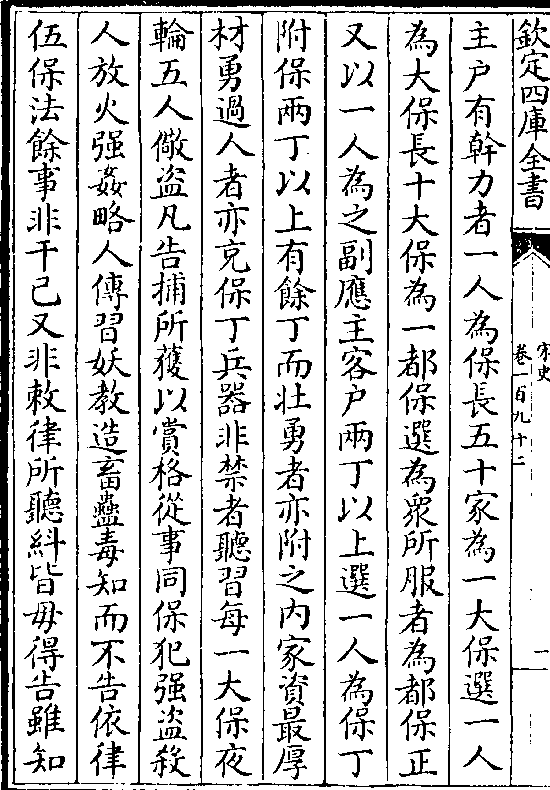 欽定四庫全書
宋史
卷一百九十二
一
主户有幹力者一人為保長五十家為一大保選一人
為大保長十大保為一都保選為衆所服者為都保正
又以一人為之副應主客户兩丁以上選一人為保丁
附保兩丁以上有餘丁而壯勇者亦附之内家資最厚
材勇過人者亦充保丁兵器非禁者聽習每一大保夜
輪五人儆盗凡告捕所獲以賞格從事同保犯强盗殺
人放火强姦略人傳習妖教造畜蠱毒知而不告依律
伍保法餘事非干己又非敕律所聽糾皆毋得告雖知